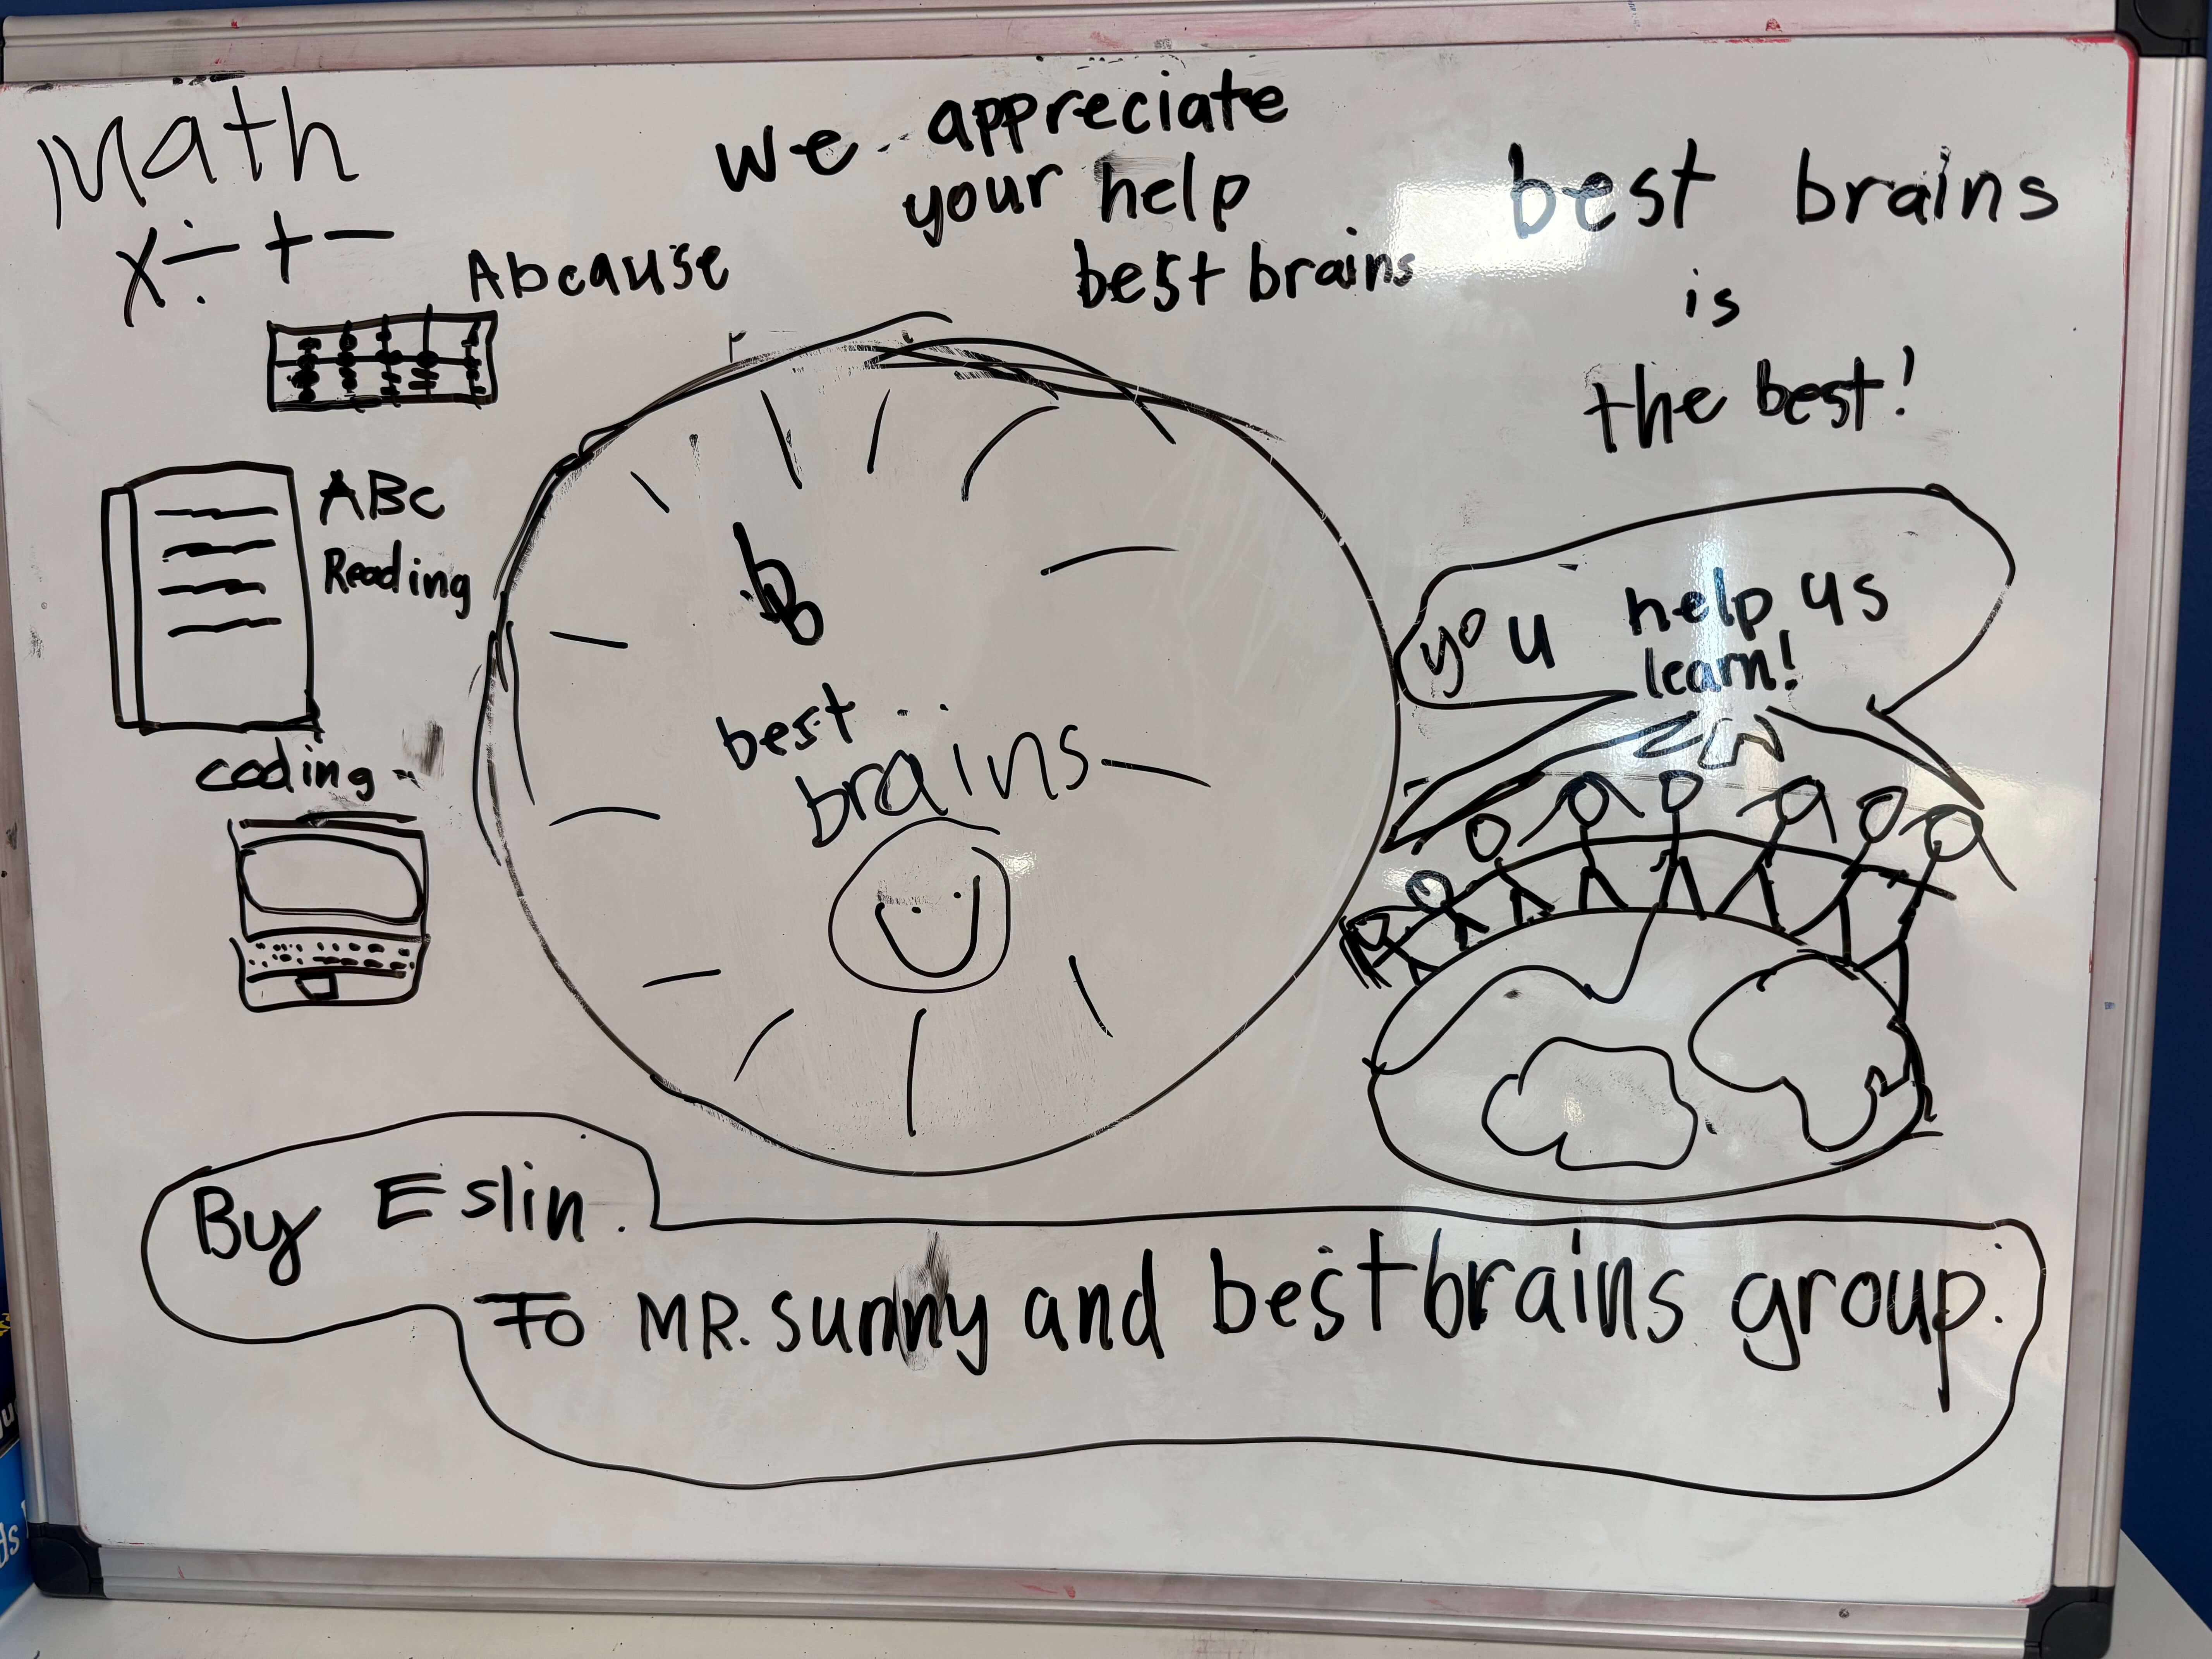 Math
x ÷ + -
Abcause
we appreciate
your help
best brains
best brains
is
the best!
ABC
Reading
coding
best
brains
you help us
learn!
By Eslin.
To MR. sunny and best brains group.